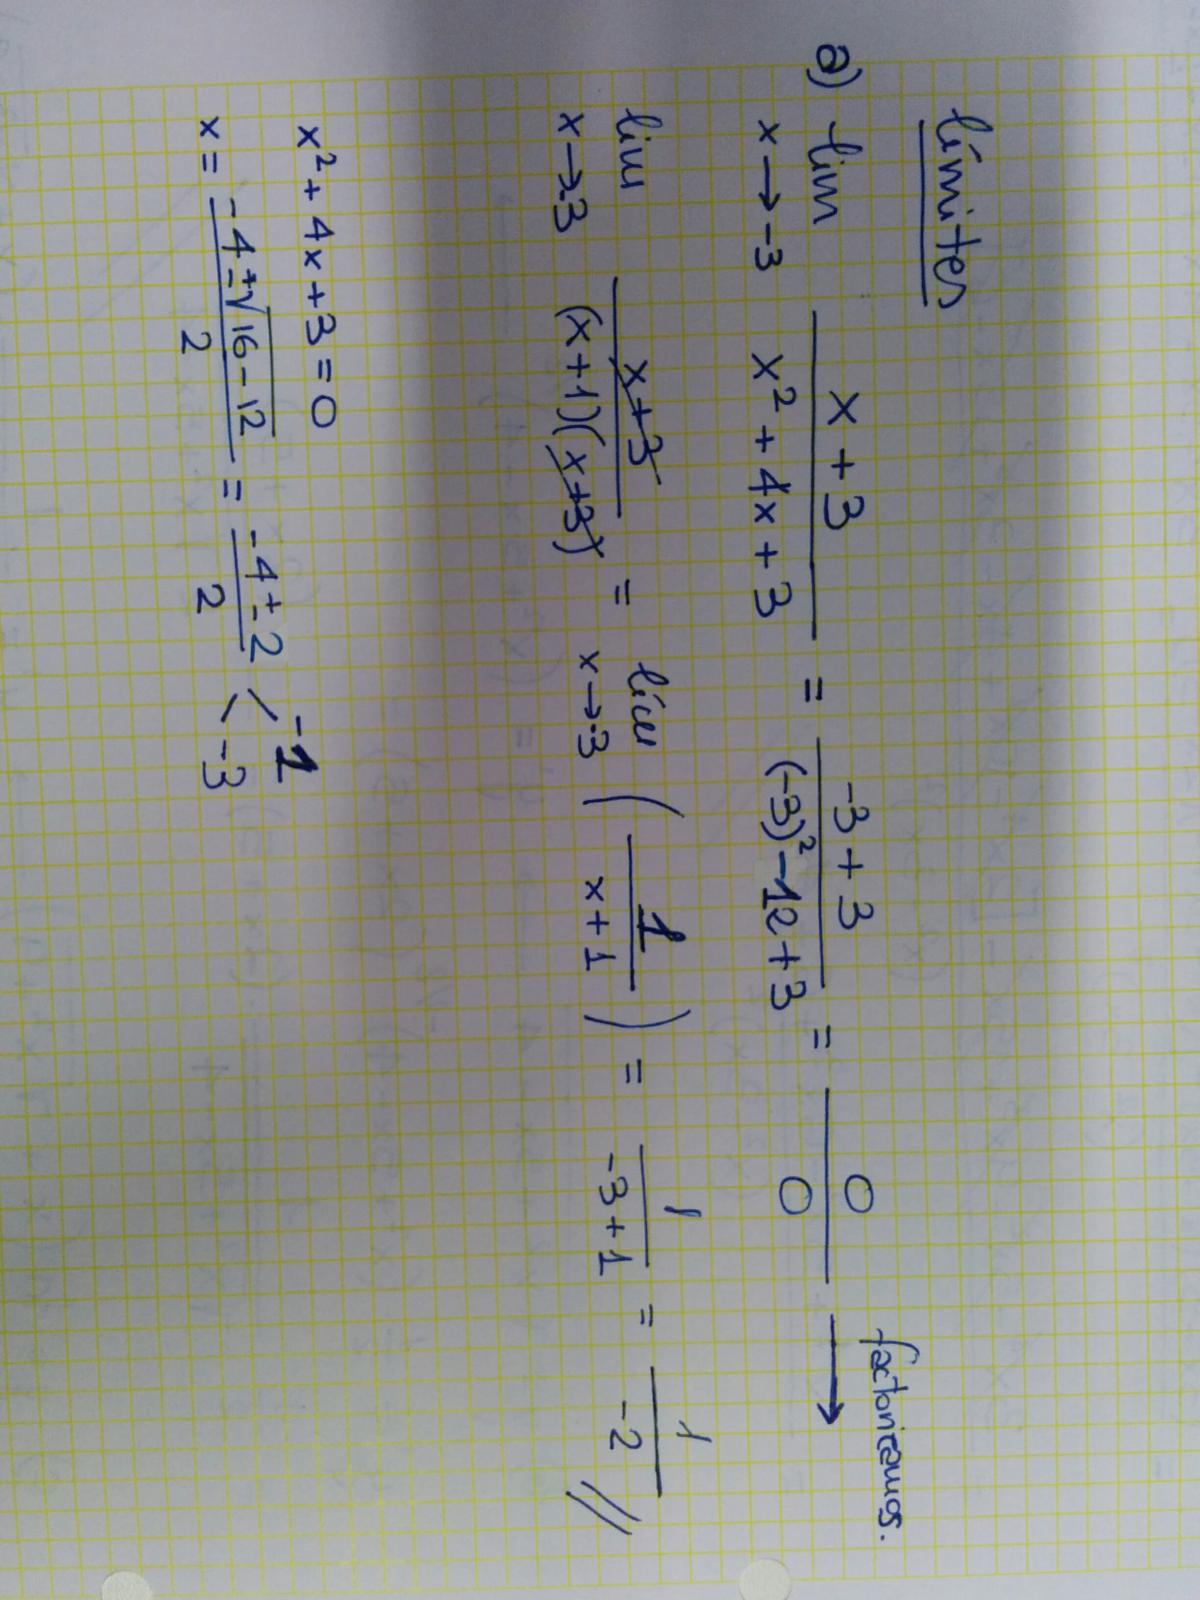 límites
a) lim x→-3 (x + 3)/(x² + 4x + 3) = (-3 + 3)/((-3)² - 12 + 3) = 0/0 → factorizamos.
lim x→-3 (x+3)/((x+1)(x+3)) = lim x→-3 (1/(x+1)) = 1/(-3+1) = 1/-2 //
x² + 4x + 3 = 0
x = (-4 ± √16-12)/2 = (-4 ± 2)/2 < -1 -3